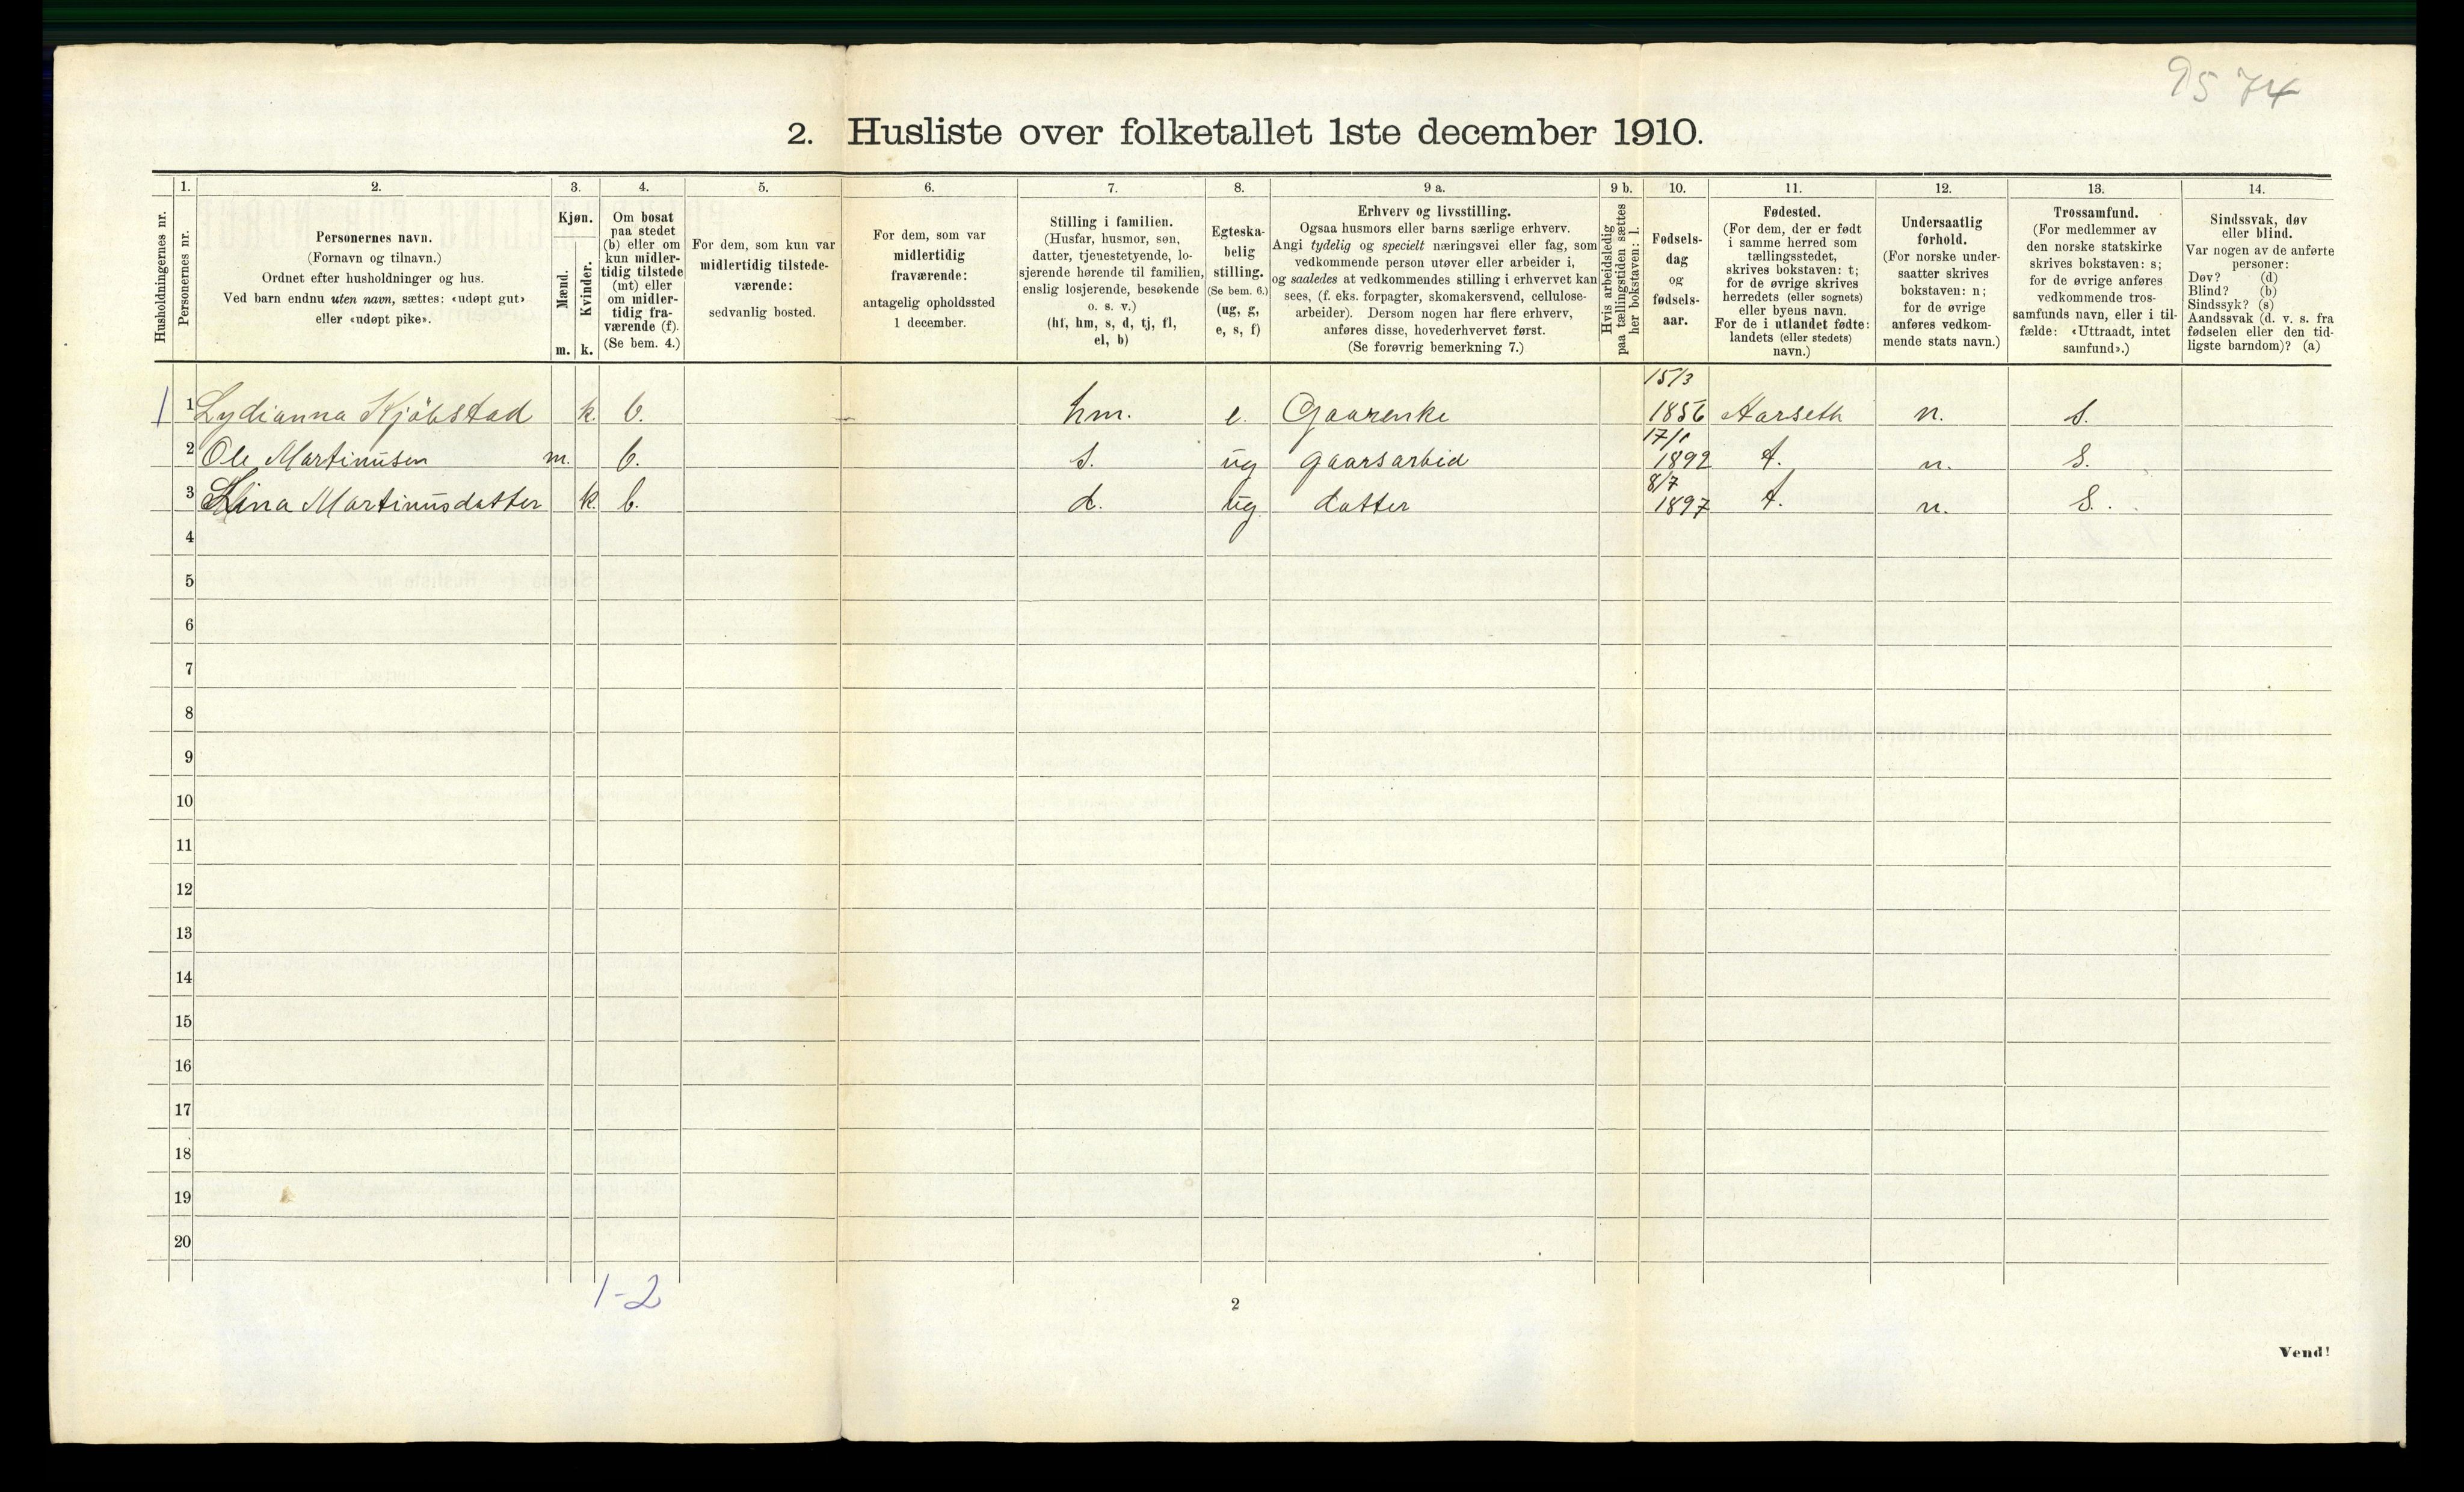 9574
2. Husliste over folketallet 1ste december 1910.
Husholdningernes nr.
1.
Personernes nr.
2.
Personernes navn.
(Fornavn og tilnavn.)
Ordnet efter husholdninger og hus.
Ved barn endnu uten navn, sættes: «udøpt gut»
eller «udøpt pike».
3.
Kjøn.
Mænd.
m.
Kvinder.
k.
4.
Om bosat
paa stedet
(b) eller om
kun midler-
tidig tilstede
(mt) eller
om midler-
tidig fra-
værende (f).
(Se bem. 4.)
5.
For dem, som kun var
midlertidig tilstede-
værende:
sedvanlig bosted.
6.
For dem, som var
midlertidig
fraværende:
antagelig opholdssted
1 december.
7.
Stilling i familien.
(Husfar, husmor, søn,
datter, tjenestetyende, lo-
sjerende hørende til familien,
enslig losjerende, besøkende
o. s. v.)
(hf, hm, s, d, tj, fl,
el, b)
8.
Egteska-
belig
stilling.
(Se bem. 6.)
(ug, g,
e, s, f)
9 a.
Erhverv og livsstilling.
Ogsaa husmors eller barns særlige erhverv.
Angi tydelig og specielt næringsvei eller fag, som
vedkommende person utøver eller arbeider i,
og saaledes at vedkommendes stilling i erhvervet kan
sees, (f. eks. forpagter, skomakersvend, cellulose-
arbeider). Dersom nogen har flere erhverv,
anføres disse, hovederhvervet først.
(Se forøvrig bemerkning 7.)
9 b.
Hvis arbeidsledig
paa tællingstiden sættes
her bokstaven: l.
10.
Fødsels-
dag
og
fødsels-
aar.
11.
Fødested.
(For dem, der er født
i samme herred som
tællingsstedet,
skrives bokstaven: t;
for de øvrige skrives
herredets (eller sognets)
eller byens navn.
For de i utlandet fødte:
landets (eller stedets)
navn.)
12.
Undersaatlig
forhold.
(For norske under-
saatter skrives
bokstaven: n;
for de øvrige
anføres vedkom-
mende stats navn.)
13.
Trossamfund.
(For medlemmer av
den norske statskirke
skrives bokstaven: s;
for de øvrige anføres
vedkommende tros-
samfunds navn, eller i til-
fælde: «Uttraadt, intet
samfund».)
14.
Sindssvak, døv
eller blind.
Var nogen av de anførte
personer:
Døv? (d)
Blind? (b)
Sindssyk? (s)
Aandssvak (d. v. s. fra
fødselen eller den tid-
ligste barndom)? (a)
15/3
1 1 Lydianna Kjöbstad k. b. hm. e. Gaarenke 1856 Aarseth n. s.
2 Ole Martinusen m. b. s. ug gaarsarbid 1892 t. n. s.
8/7
3 Lina Martinusdatter k. b. d. ug datter 1897 t. n. s.
4
5
6
7
8
9
10
11
12
13
14
15
16
17
18
19
20
1-2
2
Vend!